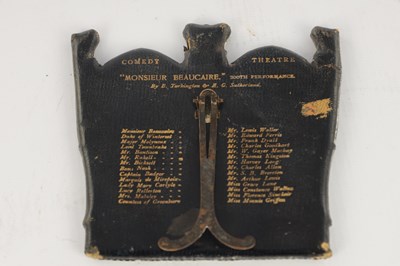 COMEDY THEATRE
"MONSIEUR BEAUCAIRE," 300TH PERFORMANCE.
By B. Tarkington & E. G. Sutherland.
Monsieur Beaucaire Mr. Lewis Waller
Duke of Winterset Mr. Edward Ferris
Major Molyneux Mr. Frank Dyall
Lord Townbrake Mr. Charles Goodhart
Mr. Bantison Mr. W. Gayer Mackay
Mr. Rakell Mr. Thomas Kingston
Mr. Bicksett Mr.
Beau Nash Mr. Charles Allan
Captain Badger Mr.
Marquis de Mr. Arthur Lewis
Lady Mary Carlyle Miss Grace Lane
Lucy Rellerton Miss Constance
Mrs. Miss Florence
Countess of Miss Griffin